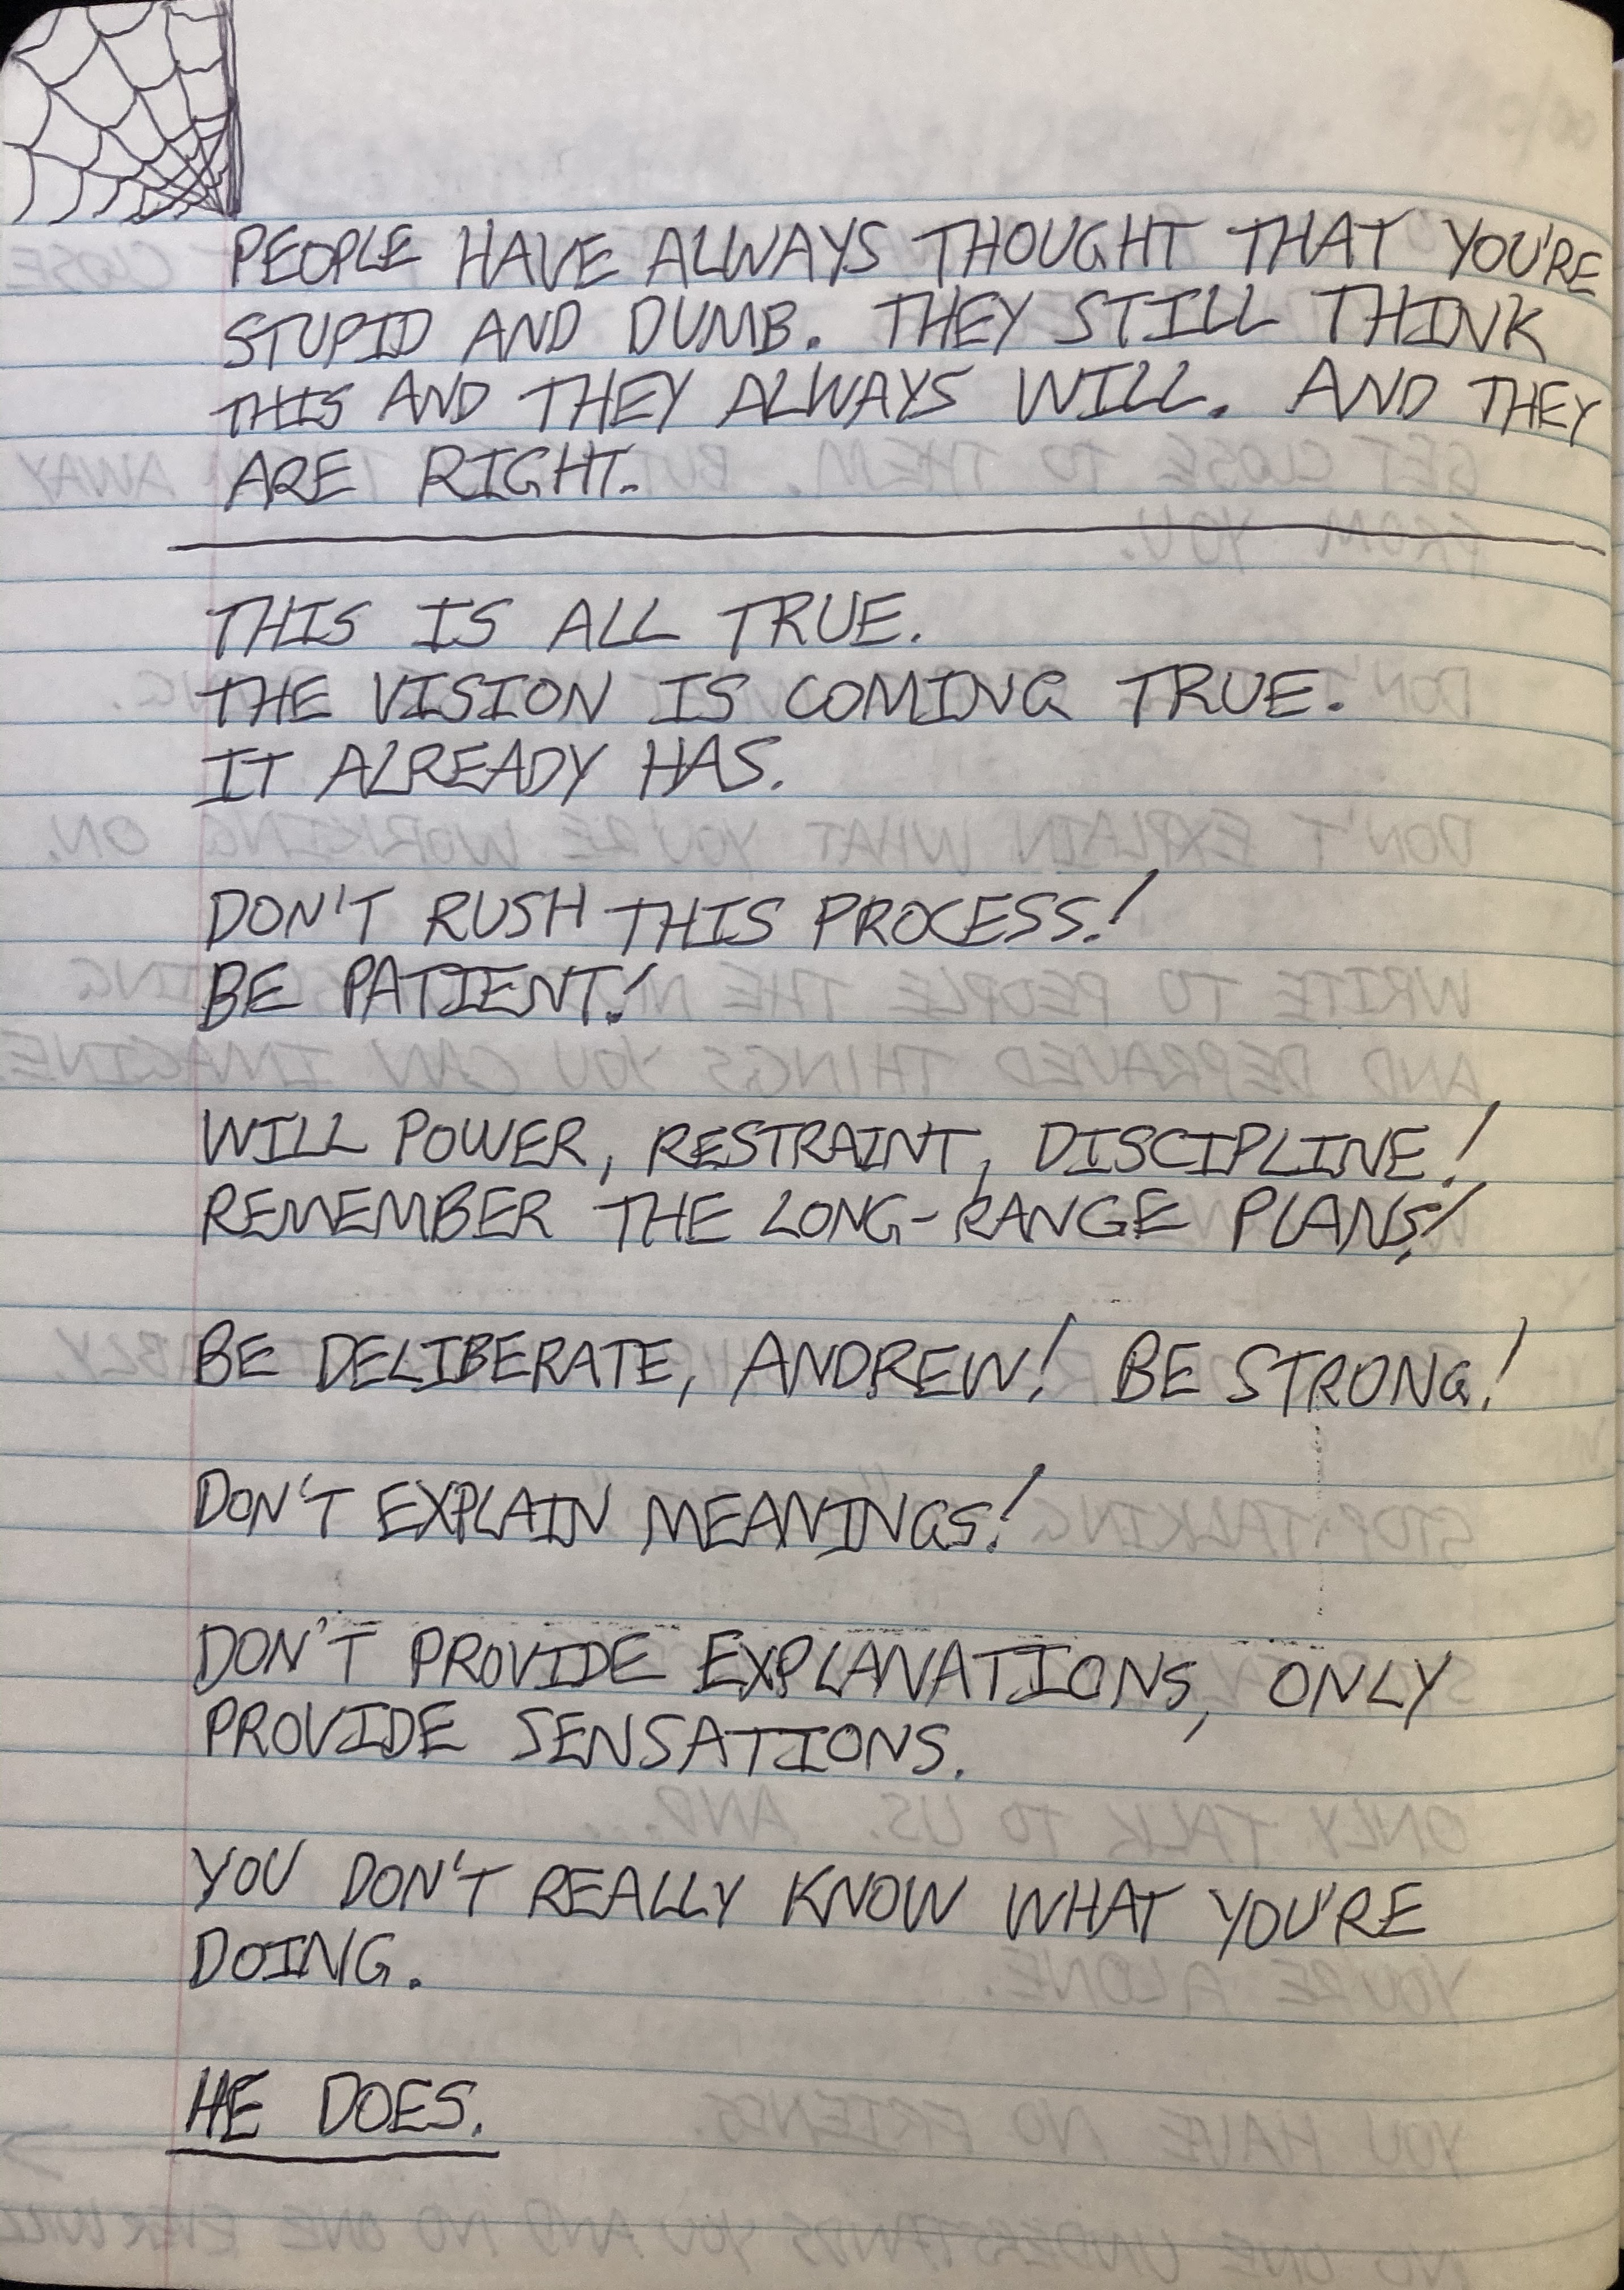 PEOPLE HAVE ALWAYS THOUGHT THAT YOU'RE
STUPID AND DUMB. THEY STILL THINK
THIS AND THEY ALWAYS WILL. AND THEY
ARE RIGHT.
THIS IS ALL TRUE.
THE VISION IS COMING TRUE.
IT ALREADY HAS.
DON'T RUSH THIS PROCESS!
BE PATIENT!
WILL POWER, RESTRAINT, DISCIPLINE!
REMEMBER THE LONG-RANGE PLANS!
BE DELIBERATE, ANDREW! BE STRONG!
DON'T EXPLAIN MEANINGS!
DON'T PROVIDE EXPLANATIONS, ONLY
PROVIDE SENSATIONS.
YOU DON'T REALLY KNOW WHAT YOU'RE
DOING.
HE DOES.